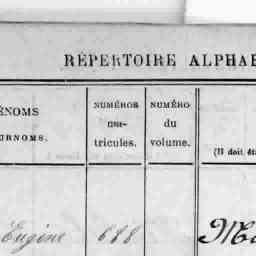 RÉPERTOIRE ALPHA
ÉNOMS
URNOMS.
NUMÉROS
ma-
tricules.
NUMÉRO
du
volume.
(Il doit êt
Eugène 688 Ma